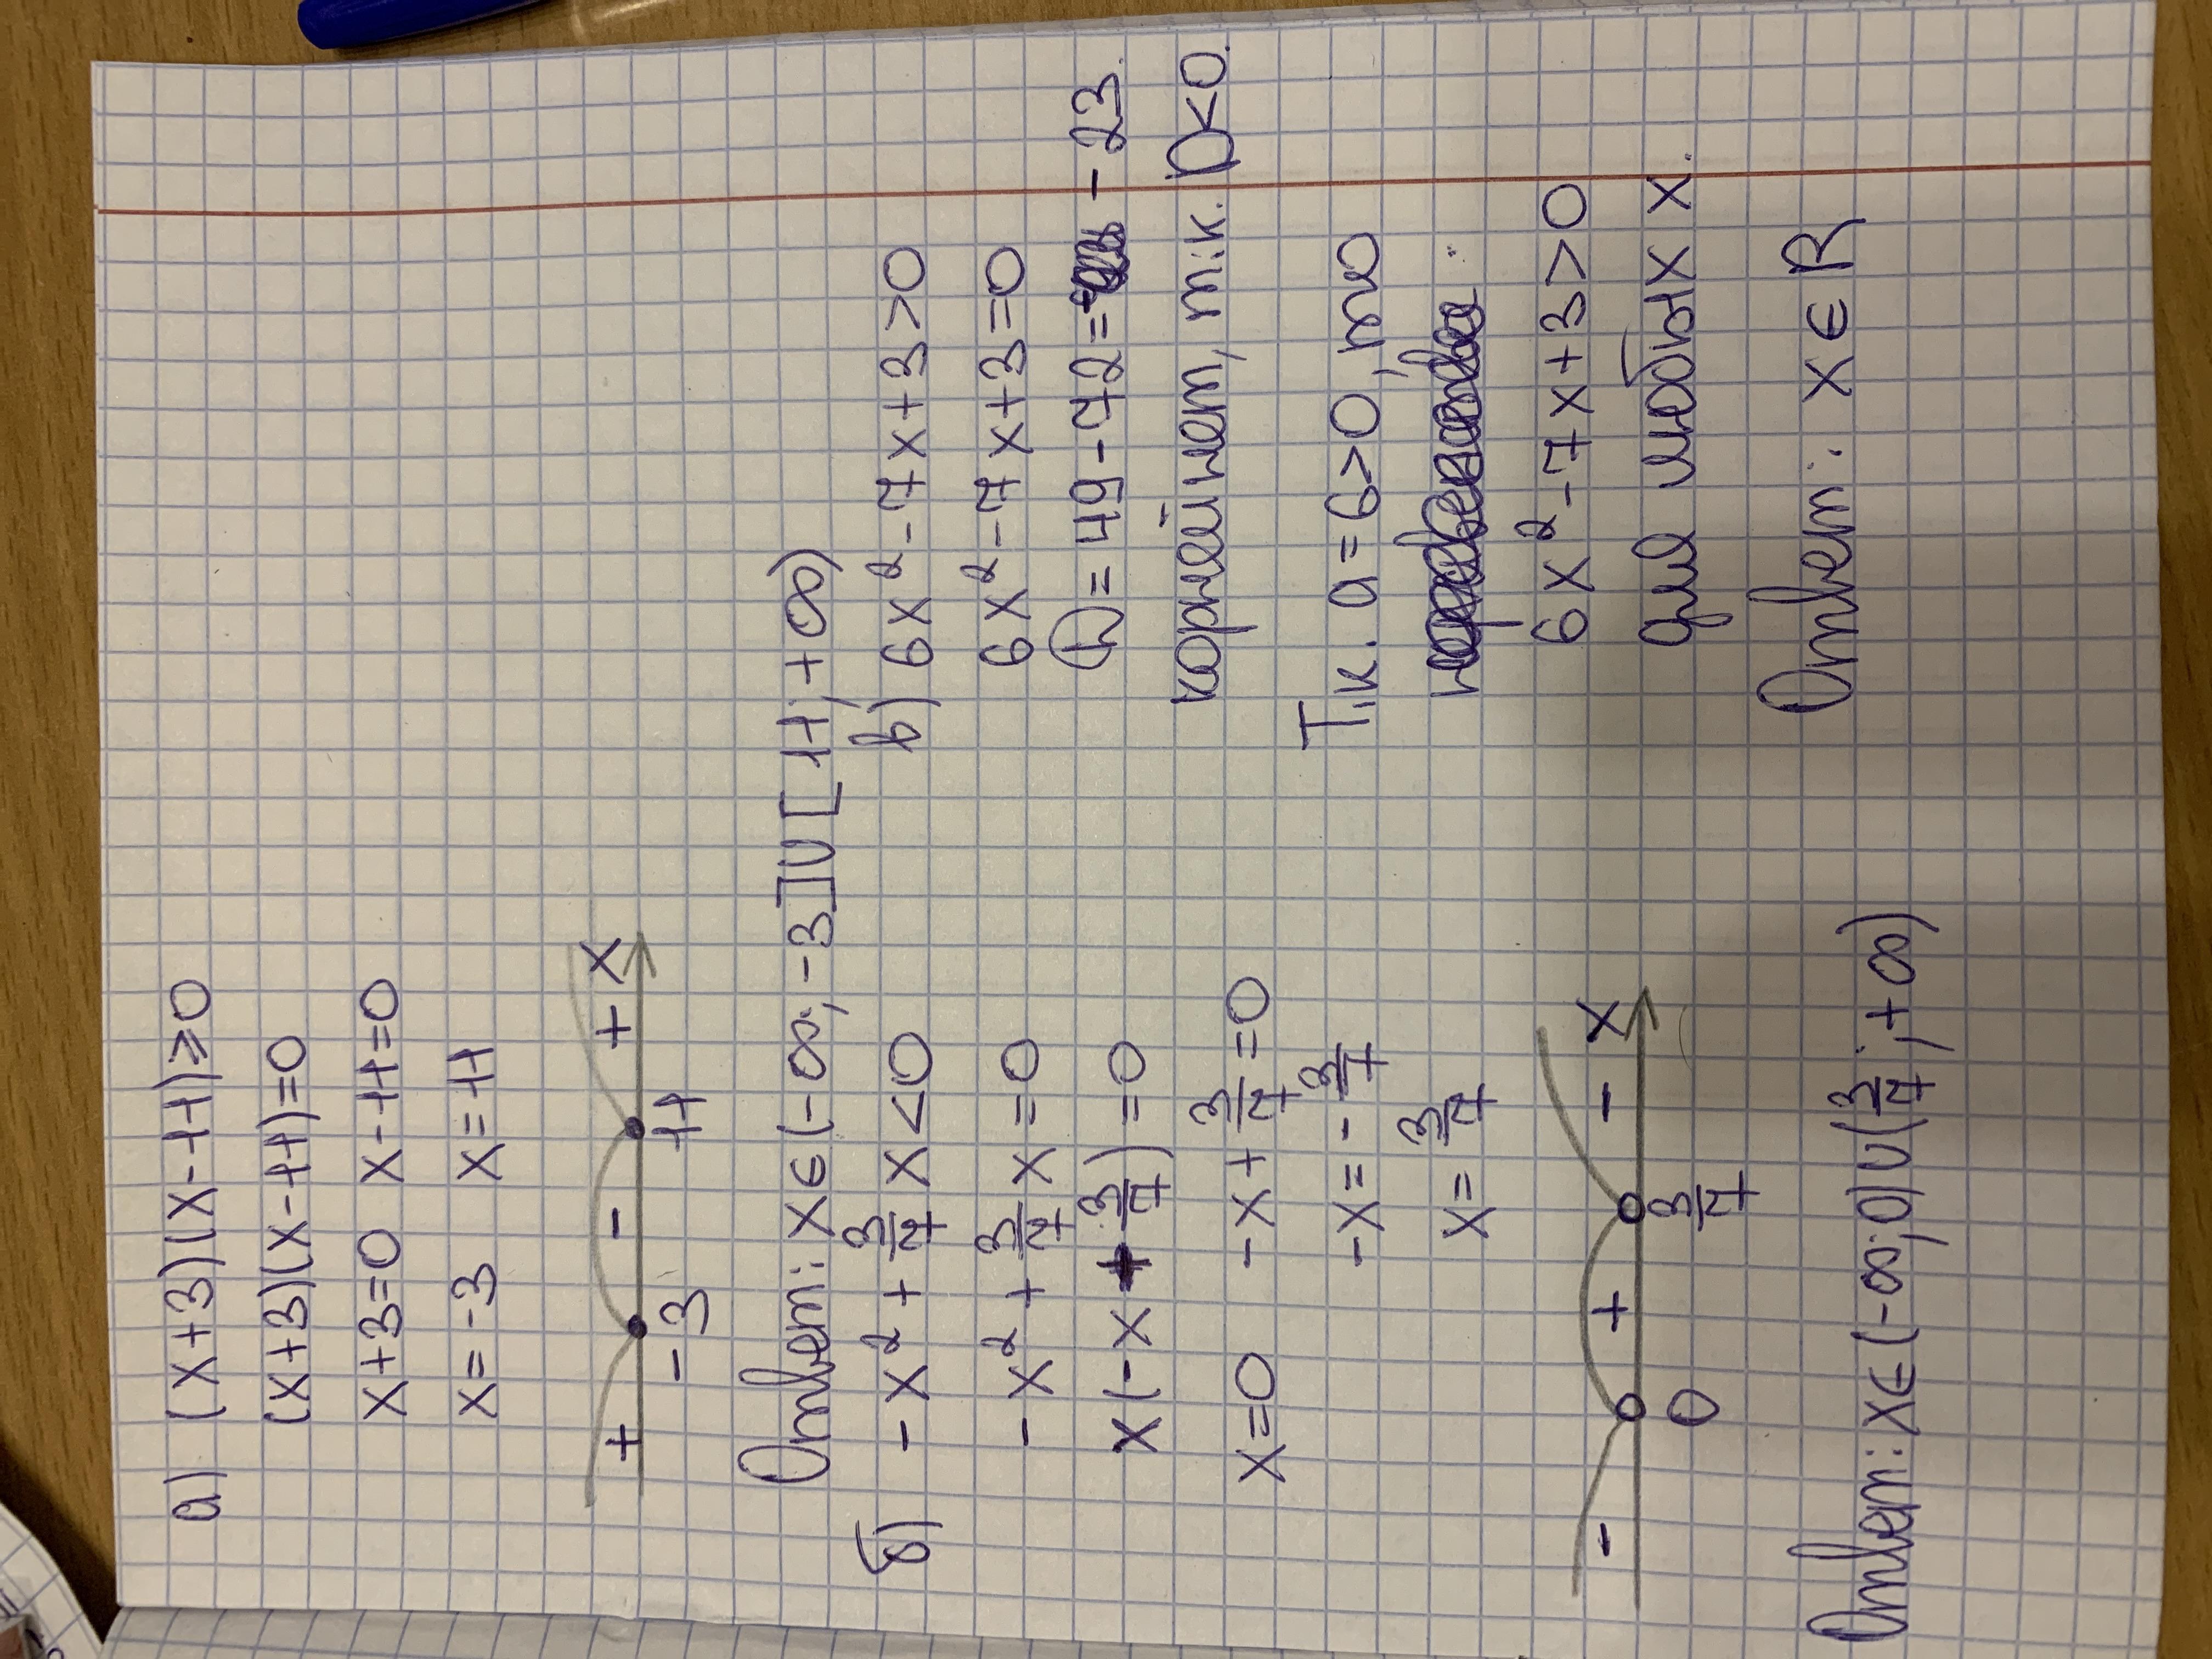 а) (x+3)(x-11)≥0
(x+3)(x-11)=0
x+3=0 x-11=0
x=-3 x=11
+ - + x
-3 11
Ответ: x∈(-∞; -3]∪[11; +∞)
б) -x²+3/7x<0
-x²+3/7x=0
x(-x+3/7)=0
x=0 -x+3/7=0
-x=-3/7
x=3/7
- + - x
0 3/7
Ответ: x∈(-∞;0)∪(3/7;+∞)
в) 6x²-7x+3>0
6x²-7x+3=0
D=49-72= -23.
корней нет, т.к. D<0.
Т.к. a=6>0, то
6x²-7x+3>0
для любых x.
Ответ: x∈R